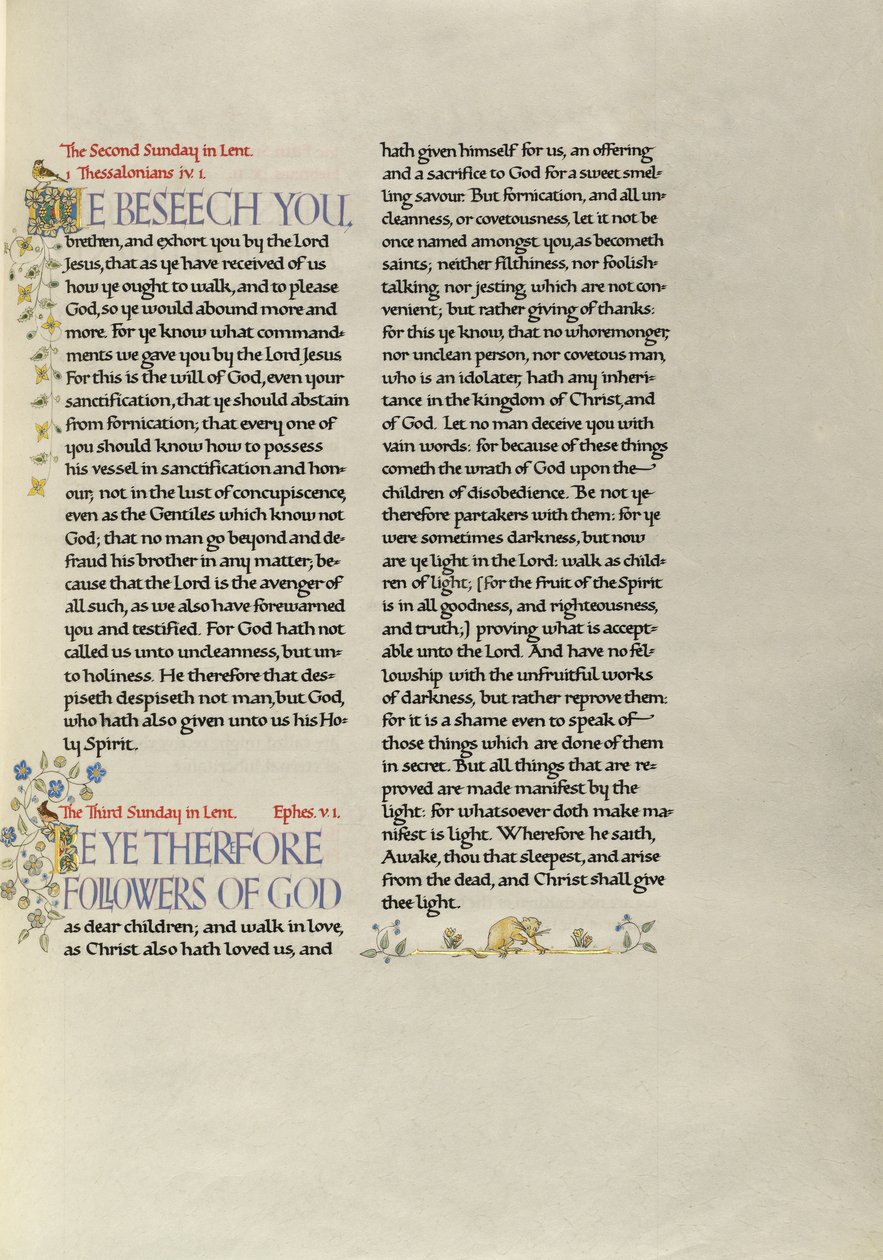 The Second Sunday in Lent.
1 Thessalonians iv. 1.
WE BESEECH YOU,
brethren, and exhort you by the Lord
Jesus, that as ye have received of us
how ye ought to walk, and to please
God, so ye would abound more and
more. For ye know what command-
ments we gave you by the Lord Jesus
For this is the will of God, even your
sanctification, that ye should abstain
from fornication; that every one of
you should know how to possess
his vessel in sanctification and hon-
our; not in the lust of concupiscence,
even as the Gentiles which know not
God; that no man go beyond and de-
fraud his brother in any matter; be-
cause that the Lord is the avenger of
all such, as we also have forewarned
you and testified. For God hath not
called us unto uncleanness, but un-
to holiness. He therefore that des-
piseth despiseth not man, but God,
who hath also given unto us his Ho-
ly Spirit.
The Third Sunday in Lent. Ephes. v. 1.
BE YE THEREFORE
FOLLOWERS OF GOD
as dear children; and walk in love,
as Christ also hath loved us, and
hath given himself for us, an offering
and a sacrifice to God for a sweet smel-
ling savour. But fornication, and all un-
cleanness, or covetousness, let it not be
once named amongst you, as becometh
saints; neither filthiness, nor foolish-
talking, nor jesting, which are not con-
venient; but rather giving of thanks:
for this ye know, that no whoremonger,
nor unclean person, nor covetous man,
who is an idolater, hath any inheri-
tance in the kingdom of Christ, and
of God. Let no man deceive you with
vain words: for because of these things
cometh the wrath of God upon the
children of disobedience. Be not ye
therefore partakers with them: for ye
were sometimes darkness, but now
are ye light in the Lord: walk as child-
ren of light; [for the fruit of the Spirit
is in all goodness, and righteousness,
and truth;] proving what is accept-
able unto the Lord. And have no fel-
lowship with the unfruitful works
of darkness, but rather reprove them:
for it is a shame even to speak of
those things which are done of them
in secret. But all things that are re-
proved are made manifest by the
light: for whatsoever doth make ma-
nifest is light. Wherefore he saith,
Awake, thou that sleepest, and arise
from the dead, and Christ shall give
thee light.